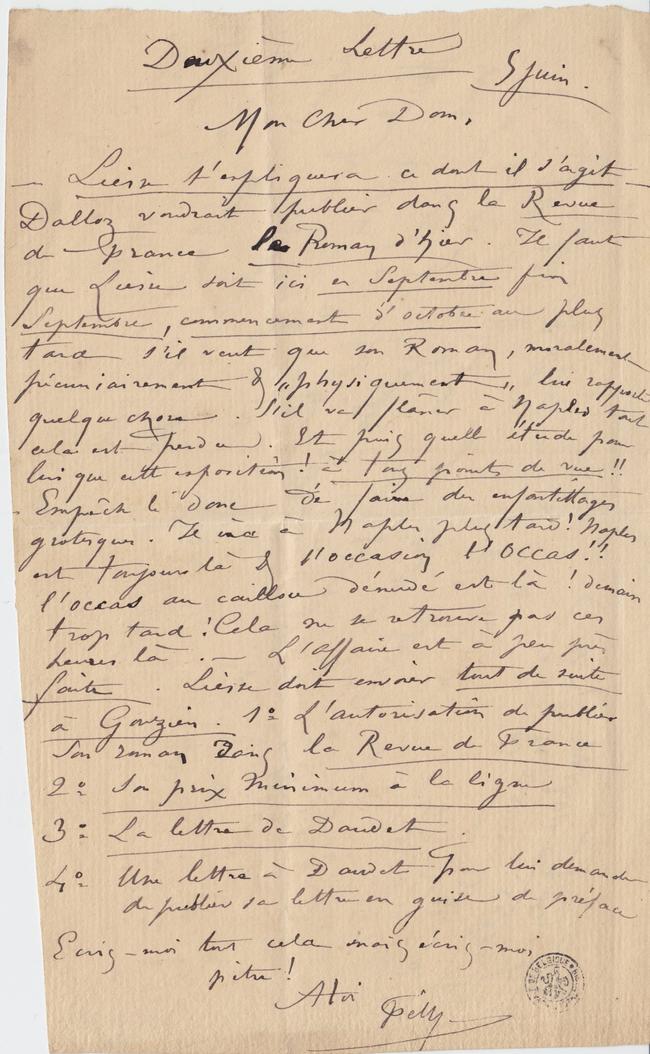 Deuxième Lettre
5 juin.
Mon cher Dom,
— Liesse t'expliquera ce dont il s'agit —
Dalloz voudrait publier dans la Revue
de France le Roman d'hier. Il faut
que Liesse soit ici en Septembre fin
Septembre, commencement d'octobre au plus
tard s'il veut que son Roman, moralement
pécuniairement & "physiquement" lui rapporte
quelque chose. S'il va flâner à Naples tout
cela est perdu. Et puis quelle étude pour
lui que cette exposition! à tous points de vue!!
- Empêche le donc de faire des enfantillages
grotesques. Il ira à Naples plus tard! Naples
est toujours là & l'occasion l'occas!!
l'occas au caillou dénudé est là! demain
trop tard! Cela ne se retrouve pas ces
heures là. — L'affaire est à peu près
faite. Liesse doit envoyer tout de suite
à Gouzien. 1º L'autorisation de publier
son roman dans la Revue de France
2º Son prix Minimum à la ligne
3º La lettre de Daudet.
4º Une lettre à Daudet pour lui demander
de publier sa lettre en guise de préface
Ecris-moi tout cela mais écris-moi
pître!
A toi
Fély
DE BELGIQUE